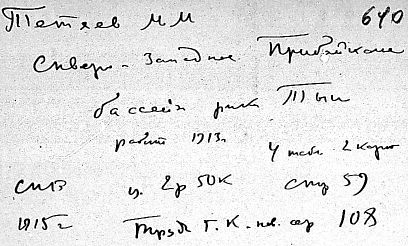 Тетяев М М 640
Северо-Западное Прибайкалье
бассейн реки Тыи
работ 1913г. 4 табл. 2 карт
СПБ ц. 2р 50к стр 59
1915г Труды Г. К. нов. сер 108